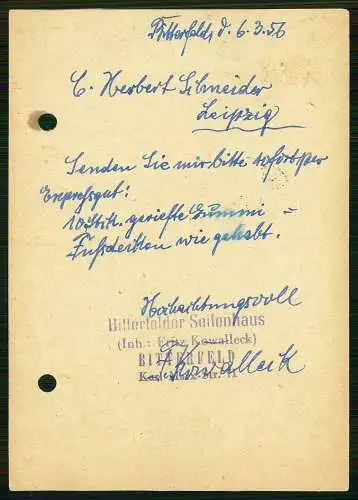 Bitterfeld, d. 6.3.56
C. Herbert Schneider
Leipzig
Senden Sie mir bitte sofort per
Expreßgut:
10 Stck. geriefte Gummi =
Fußdecken wie gehabt.
Hochachtungsvoll
Bitterfelder Seifenhaus
(Inh.: Fritz Kowalleck)
BITTERFELD
Karl-Marx-Str. 11
Kowalleck